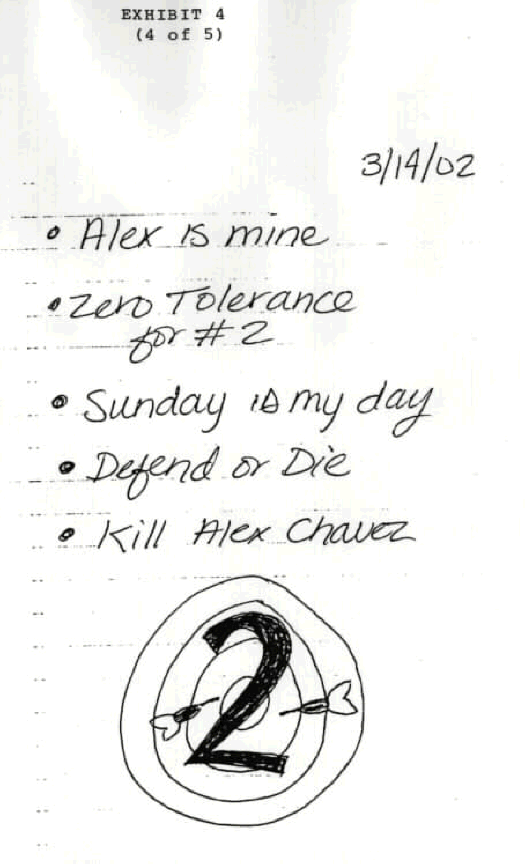 EXHIBIT 4
(4 of 5)
3/14/02
• Alex is mine
• Zero Tolerance
for # 2
• Sunday is my day
• Defend or Die
• Kill Alex Chavez
2